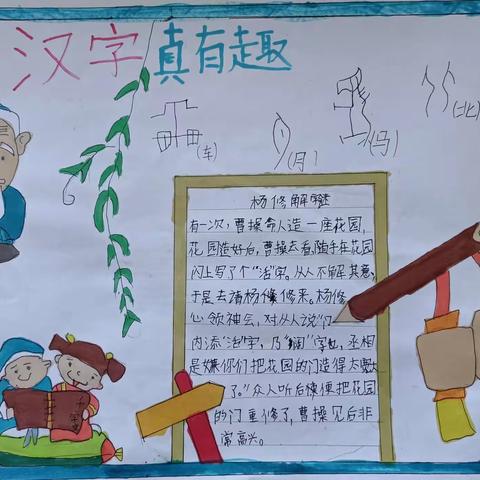 汉字真有趣
(车)
(月)
(马)
(北)
杨修解谜
有一次，曹操命人造一座花园，
花园造好后，曹操去看，随手在花园
门上写了个“活”字。众人不解其意，
于是去请杨修修来。杨修
心领神会，对众人说“门
内添“活”字，乃“阔”字也，丞相
是嫌你们把花园的门造得太宽大
了。”众人听后便把花园
的门重修了，曹操见后非
常高兴。